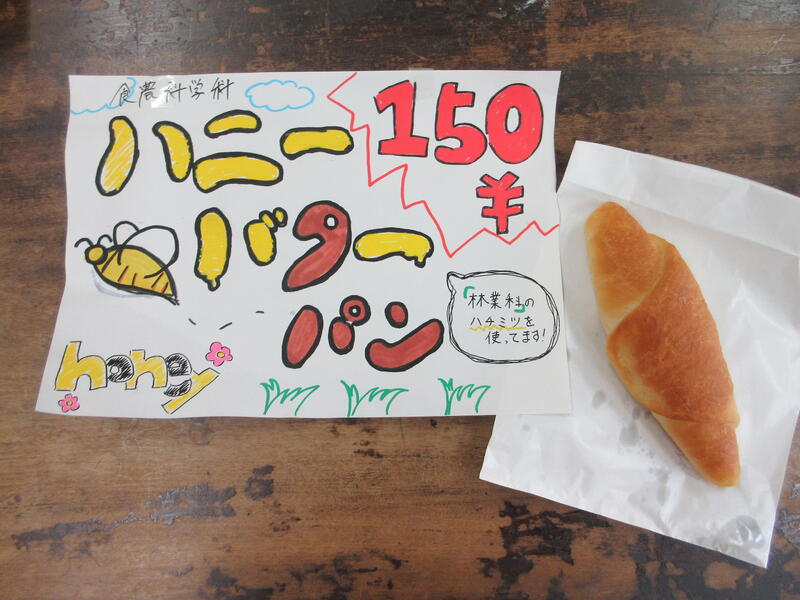 食農科学科
ハニー
バター
パン
150
¥
「林業科」の
ハチミツを
使ってます!
honey